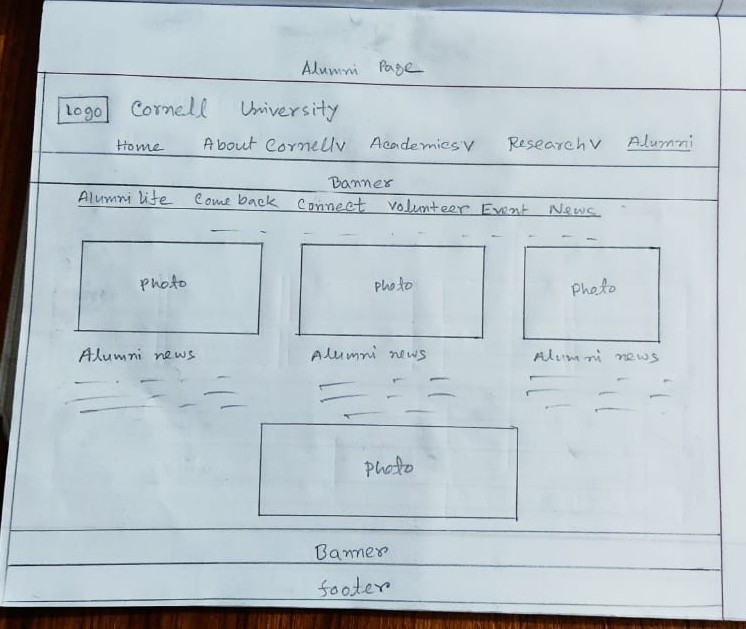 Alumni Page
Logo Cornell University
Home About Cornell v Academics v Research v Alumni
Banner
Alumni life Come back Connect Volunteer Event News
photo photo photo
Alumni news Alumni news Alumni news
photo
Banner
footer